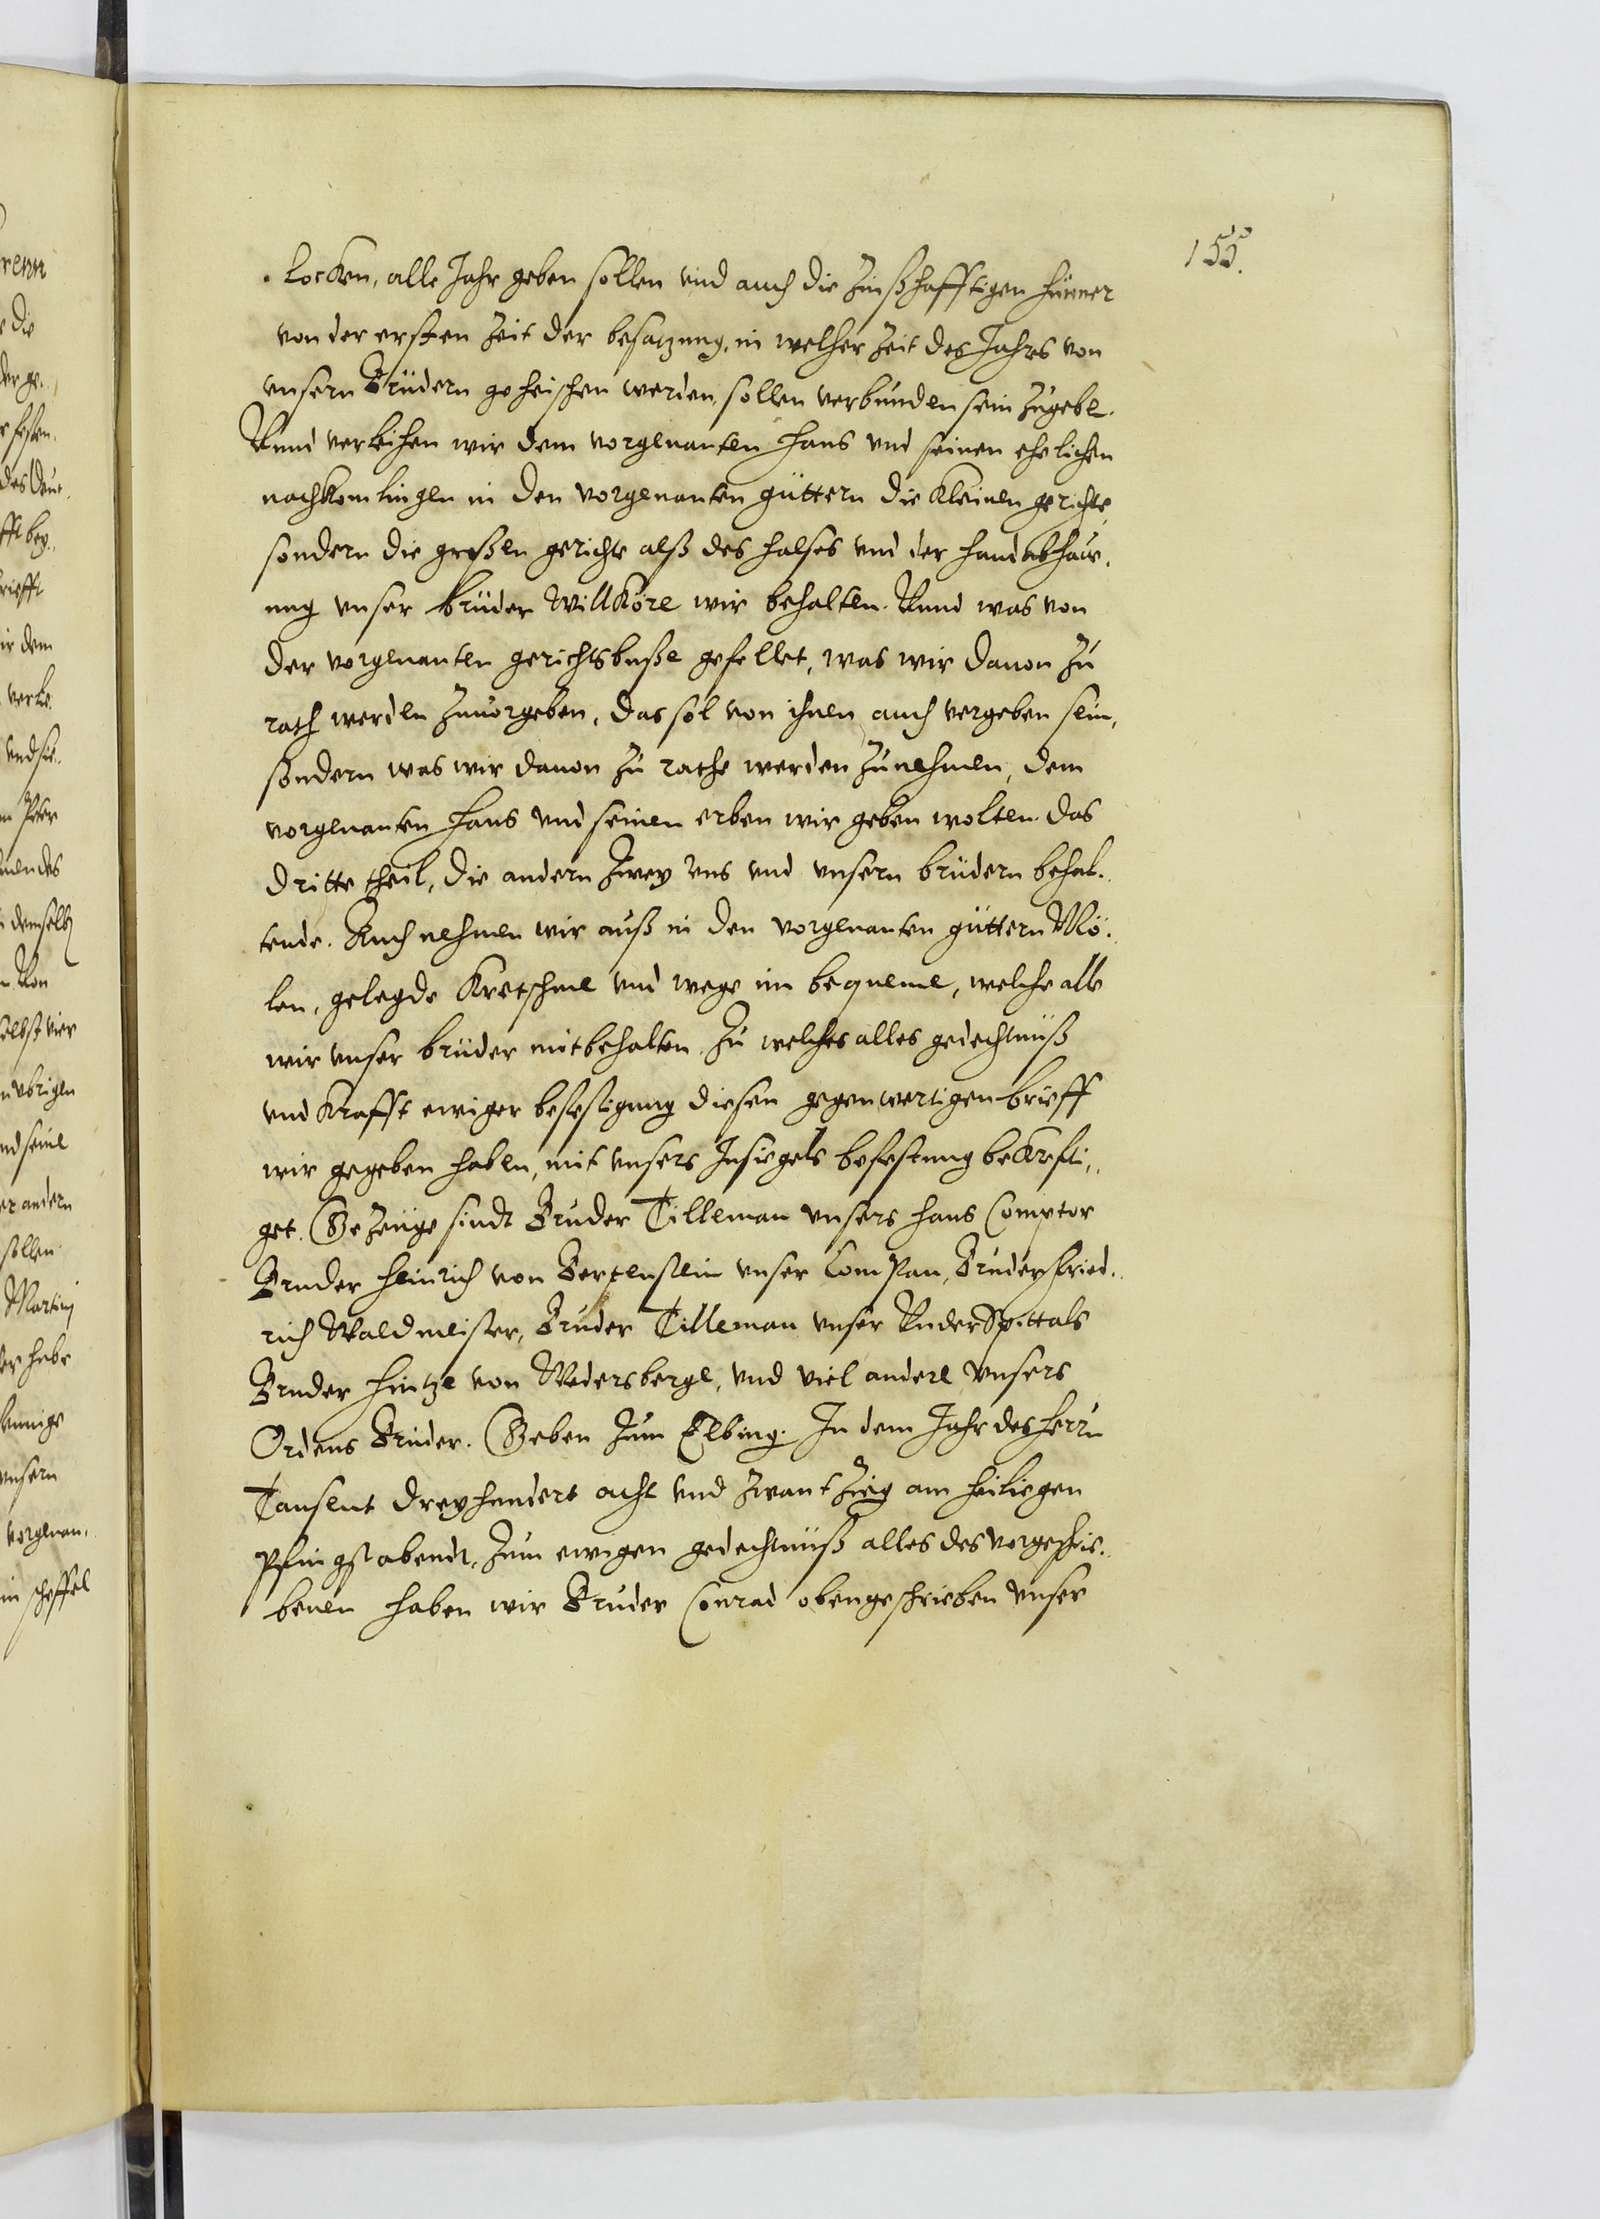 155.
Rocken, alle Jahr geben sollen vnd auch die Zinßhafftigen hünner
von der ersten Zeit der besatzung, in welcher Zeit des Jahrs von
vnsern Brüdern geheischen werden, sollen verbunden sein zugebe.
Vnnd verleihen wir dem vorgenanten Hans vnd seinen ehelichen
nachkomlingen in den vorgenanten güttern die Kleinen gerichte
sondern die großen gerichte alß des halses vnd der handabhaw.
ung vnser brüder Willköre wir behalten. Vnnd was von
der vorgenanten gerichtsbuße gefellet, was wir dauon zu
rath werden zuuorgeben, das sol von ihnen auch vergeben sein,
sondern was wir dauon zu rathe werden zunehmen, dem
vorgenanten Hans vnd seinen erben wir geben wolten das
dritte theil, die andern zwey vns vnd vnsern brüdern behal.
tende. Auch nehmen wir auß in den vorgenanten güttern Mö.
len, gelegde Kretschme vnd wege im bequeme, welche alle
wir vnser brüder mitbehalten. Zu welches alles gedechtnüß
vnd Krafft ewiger befestigung diesen gegenwertigen brieff
wir gegeben haben, mit vnsers Insiegels befestung bekrefti,,
get. Gezeuge sindt Bruder Tilleman vnsers Haus Comptor
Bruder Heinrich von Bertenstein vnser Compan, Bruder Fried..
rich Waldmeister, Bruder Tilleman vnser Vnder Spittals
Bruder Hintze von Wedersberge, vnd viel andere vnsers
Ordens Brüder. Geben zum Elbing. In dem Jahr des Herrn
Tausent dreyhundert acht vnd zwantzieg am heiliegen
Pfingstabendt, zum ewigen gedechtnüß alles des vorgeschrie..
benen haben wir Bruder Conrad obengeschrieben vnser